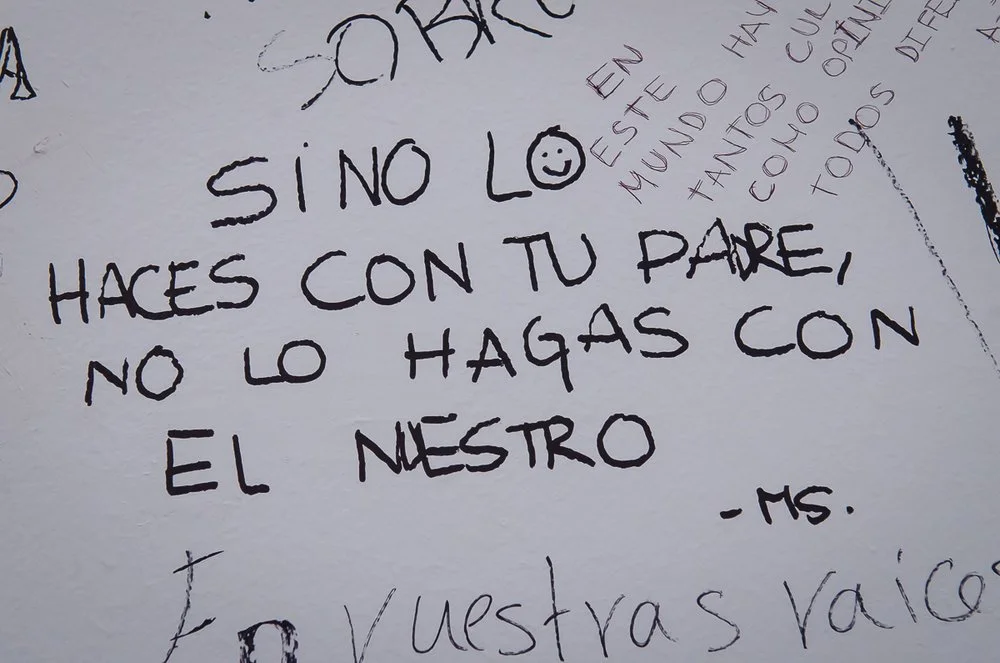 SOBRE
EN
ESTE
MUNDO HAY
TANTOS CUL
COMO OPINI
TODOS DIFE
A
Si NO LO
HACES CON TU PADRE,
NO LO HAGAS CON
EL NUESTRO
- MS.
En vuestras raices